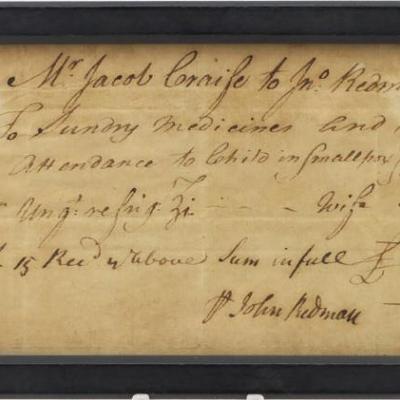 Mr. Jacob Craise to Jno. Redm
To Sundry Medicines and
Attendance to Child in Smallpox
Ungt. refrig. ℥i. - - - Wife
15 Recd. ye above Sum in full £
John Redman